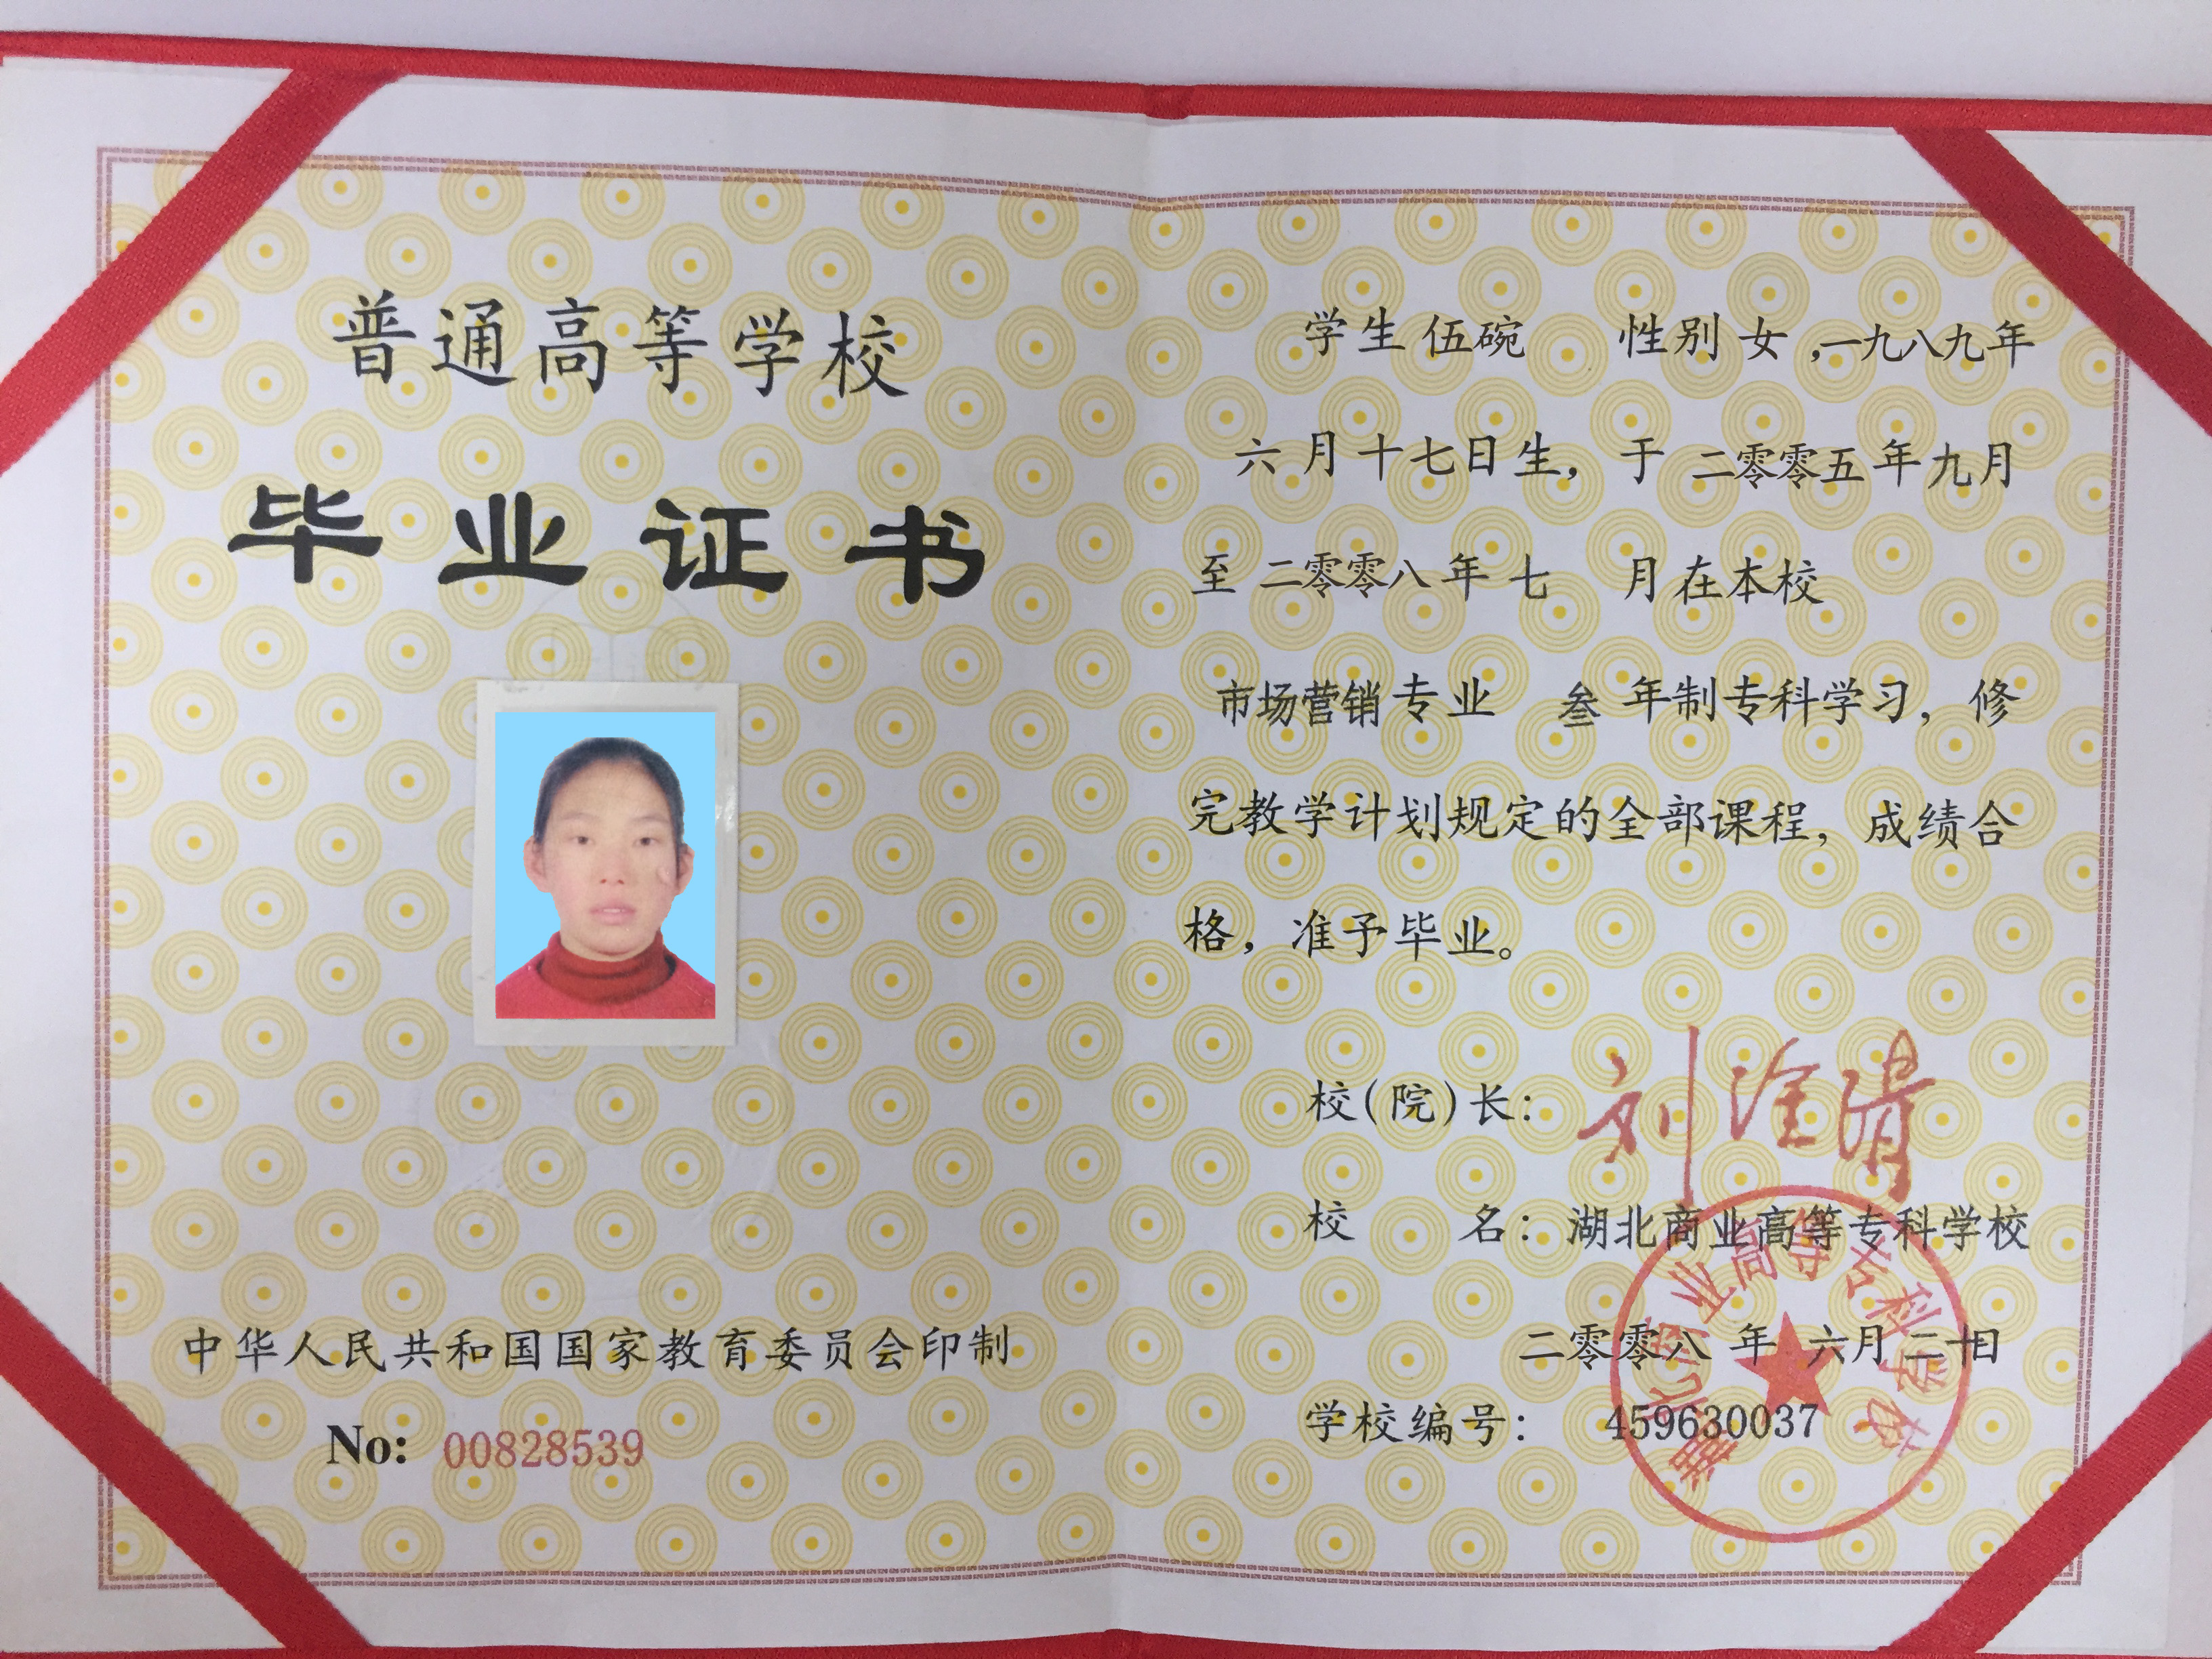 普通高等学校
毕业证书
中华人民共和国国家教育委员会印制
No: 00828539
学生 伍碗 性别 女，一九八九年
六月十七日生，于 二零零五年九月
至 二零零八年七 月在本校
市场营销专业 叁 年制专科学习，修
完教学计划规定的全部课程，成绩合
格，准予毕业。
校(院)长：
校 名：湖北商业高等专科学校
二零零八 年 六月二十日
学校编号： 459630037